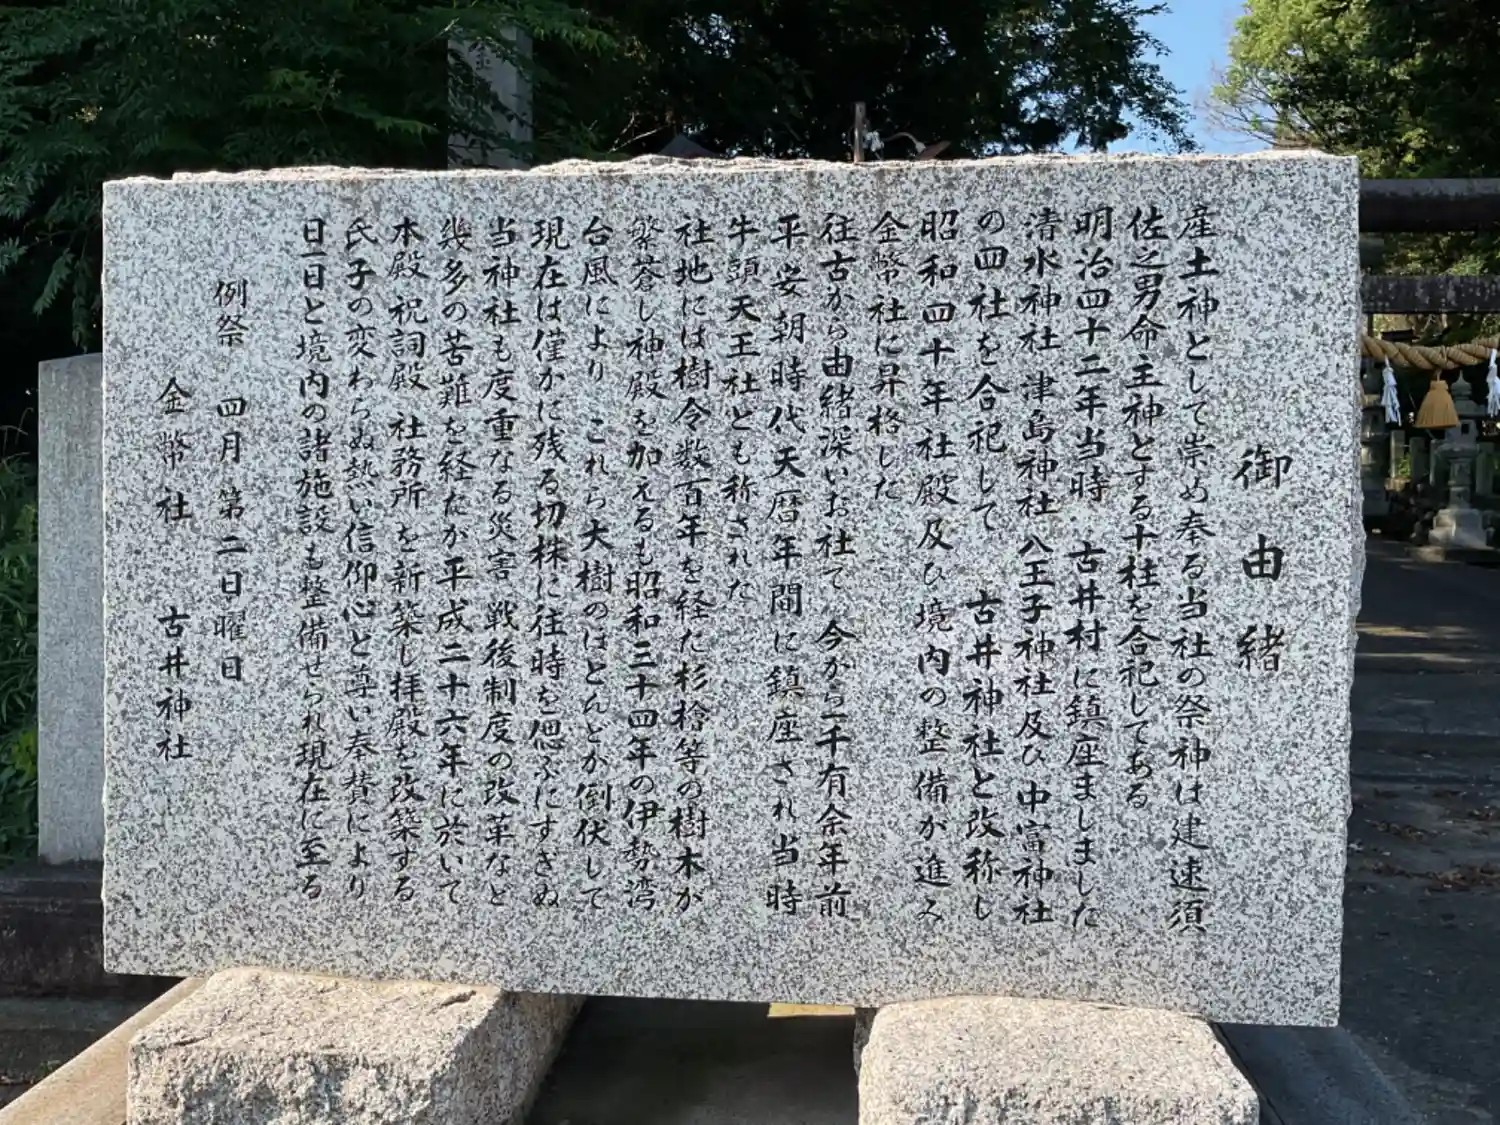 御由緒
産土神として崇め奉る当社の祭神は建速須
佐之男命主神とする十柱を合祀してある
明治四十二年当時 古井村に鎮座ましました
清水神社 津島神社 八王子神社及び中富神社
の四社を合祀して 古井神社と改称し
昭和四十年社殿及び境内の整備が進み
金幣社に昇格した
往古から由緒深いお社で 今から一千有余年前
平安朝時代天暦年間に鎮座され当時
牛頭天王社とも称された
社地には樹令数百年を経た杉桧等の樹木が
繁蒼し神殿を加えるも昭和三十四年の伊勢湾
台風により これら大樹のほとんどが倒伏して
現在は僅かに残る切株に往時を偲ぶにすぎぬ
当神社も度重なる災害 戦後制度の改革など
幾多の苦難を経たが平成二十六年に於いて
本殿 祝詞殿 社務所を新築し拝殿を改築する
氏子の変わらぬ熱い信仰心と尊い奉賛により
日一日と境内の諸施設も整備せられ現在に至る
例祭 四月第二日曜日
金幣社 古井神社